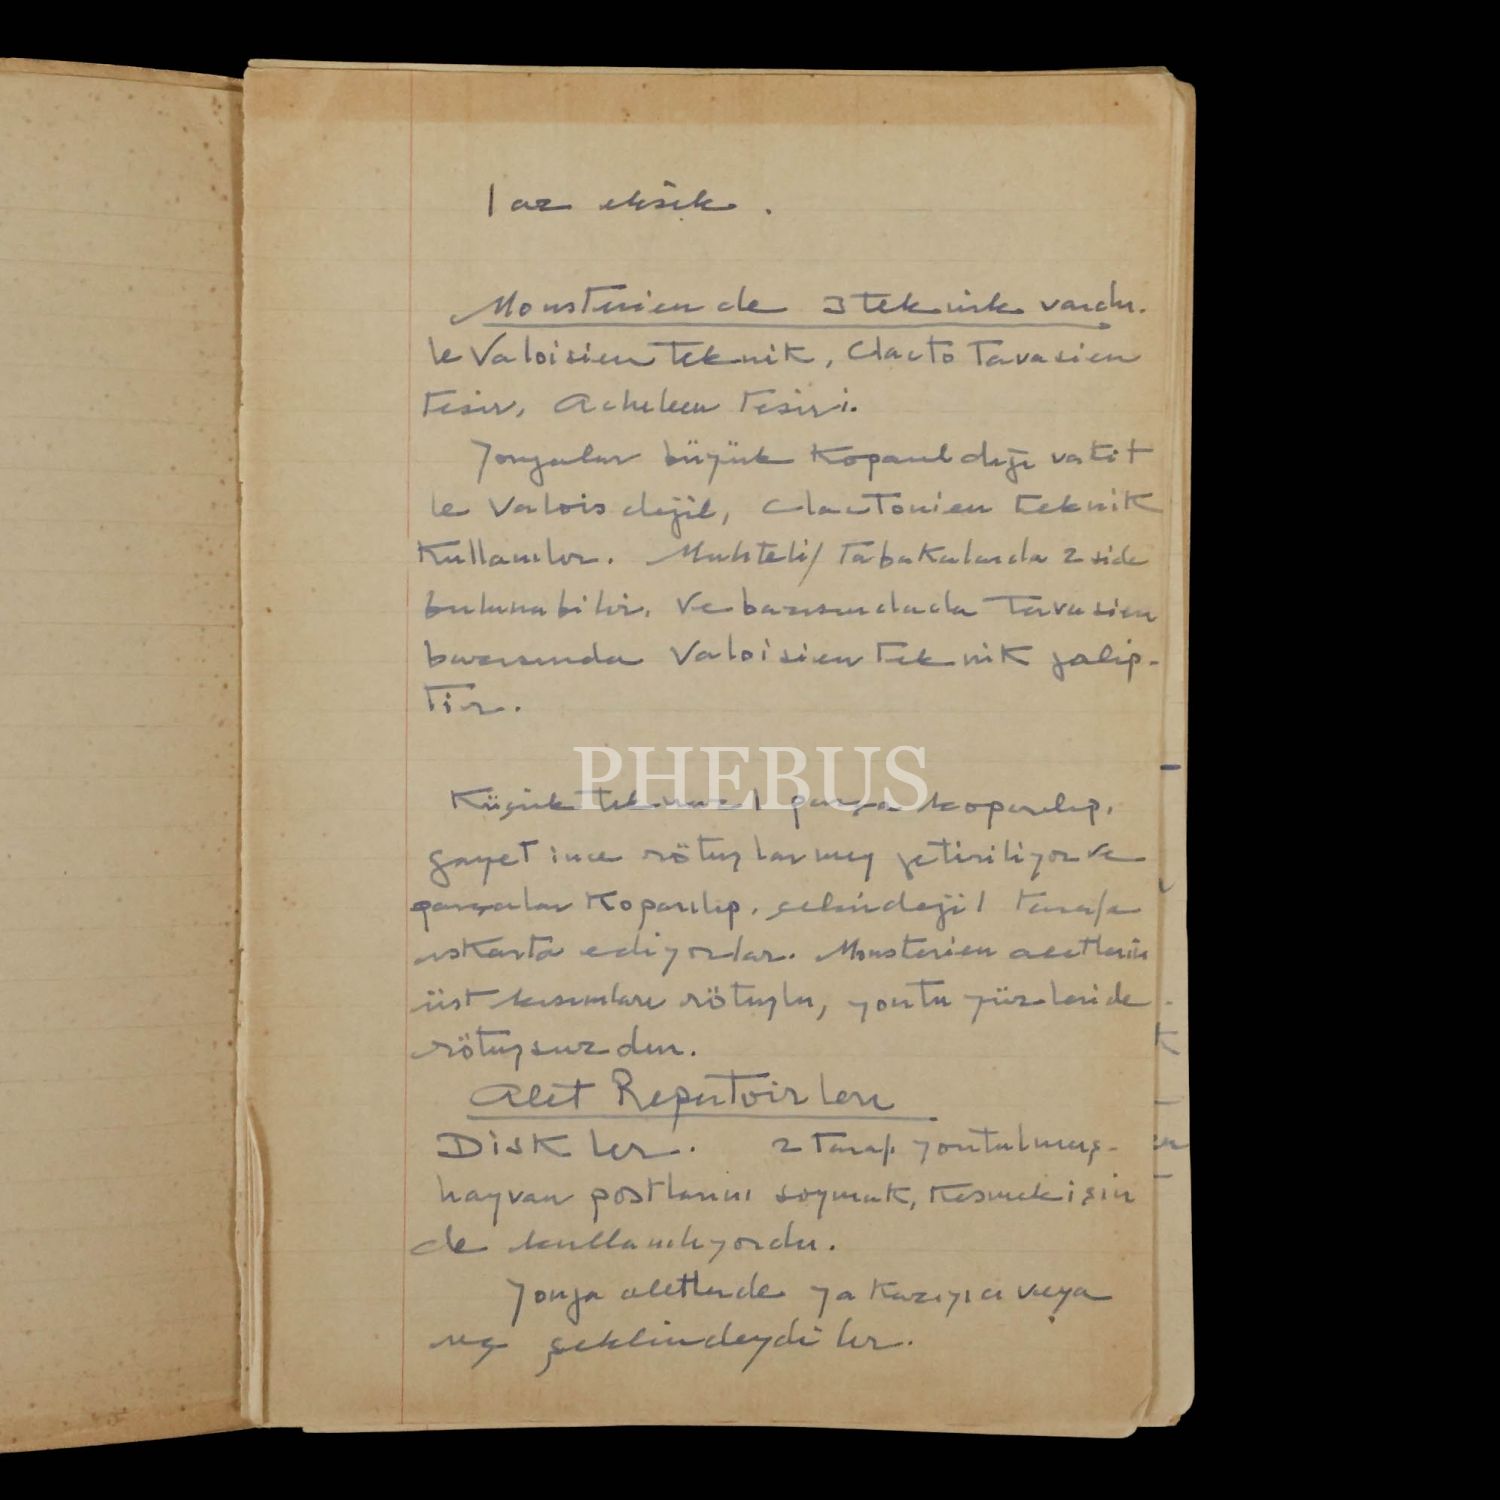 1 az eksik.
Mousterien de 3 teknik vardır.
le Valoisien teknik, Clacto Tavasien
tesir, Acheleen tesiri.
Yongalar büyük koparıldığı vakit
le Valois değil, Clactonien teknik
kullanılır. Muhtelif tabakalarda 2 side
bulunabilir. Ve bazısındada Tavasien
bazısında Valoisien teknik galip-
tir.
PHEBUS
Küçük parça koparılıp,
gayet ince rötuşlar getiriliyor ve
parçalar koparılıp, 1 tarafa
ıskarta ediyorlar. Mousterien aletlerin
üst kısımları rötuşlu, yontu yüzleride
rötuşsuzdur.
Alet Repertoirleri
Diskler. 2 taraf. yontulmuş.
hayvan postlarını soymak, kesmek için
de kullanılıyordu.
Yonga aletlerde ya kazıyıcı veya
uç şeklindeydiler.